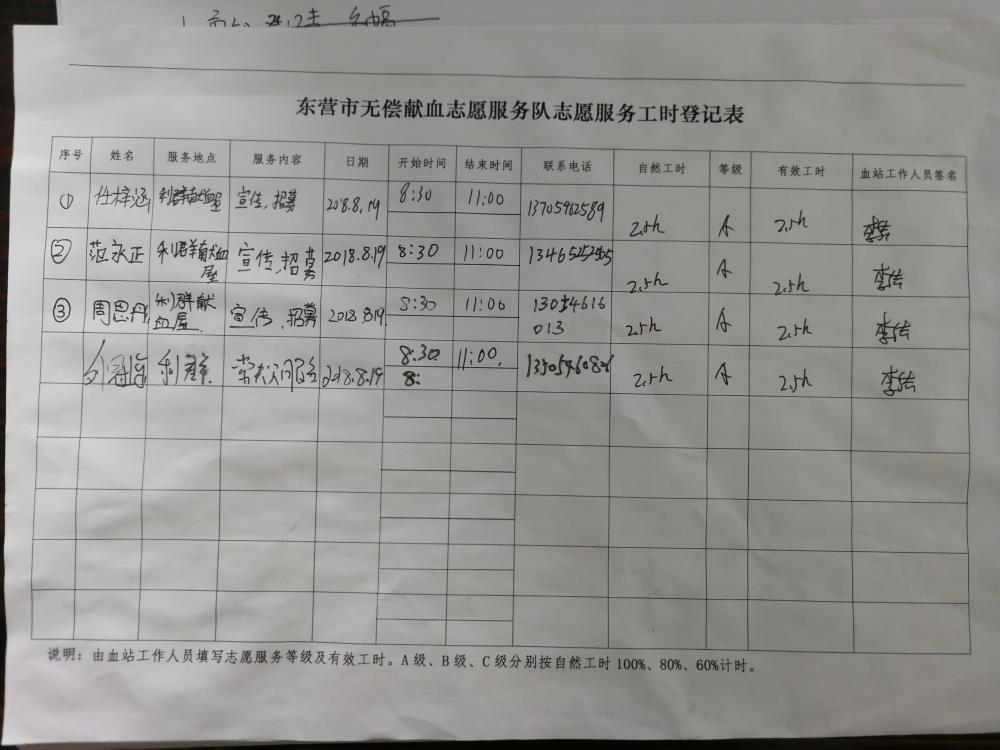 东营市无偿献血志愿服务队志愿服务工时登记表
序号 姓名 服务地点 服务内容 日期 开始时间 结束时间 联系电话 自然工时 等级 有效工时 血站工作人员签名
① 任梓涵 利群献血屋 宣传,招募 2018.8.19 8:30 11:00 13705462589 2.5h A 2.5h
② 范永正 利群献血屋 宣传,招募 2018.8.19 8:30 11:00 2.5h A 2.5h
③ 周思彤 利群献血屋. 宣传,招募 2018.8.19 8:30 11:00 13054616013 2.5h A 2.5h
利群. 2018.8.19 8:30 11:00. 2.5h A 2.5h
8:
说明:由血站工作人员填写志愿服务等级及有效工时。A级、B级、C级分别按自然工时100%、80%、60%计时。